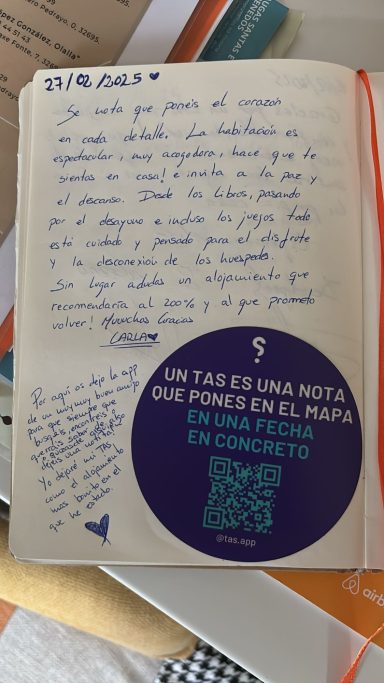 27/02/2025 ♥
Se nota que poneis el corazón
en cada detalle. La habitación es
espectacular, muy acogedora, hace que te
sientas en casa! e invita a la paz y
el descanso. Desde los Libros, pasando
por el desayuno e incluso los juegos todo
está cuidado y pensado para el disfrute
y la desconexión de los huespedes.
Sin lugar adudas un alojamiento que
recomendaría al 200% y al que prometo
volver! Muuuchas Gracias
CARLA ♥
Por aquí os dejo la app
de un muy muy buen amigo
para que siempre que
busquéis, encontréis o
queráis saber algo
dejéis una nota!
Yo dejaré mi TAS
como el alojamiento
más bonito en el
que he estado.
UN TAS ES UNA NOTA
QUE PONES EN EL MAPA
EN UNA FECHA
EN CONCRETO
@tas.app
López González, Olalla"
44 51 43
ase Fonte, 7. 32695.
Pedrayo, 0. 32695.
UGAS SANTAS E
airb